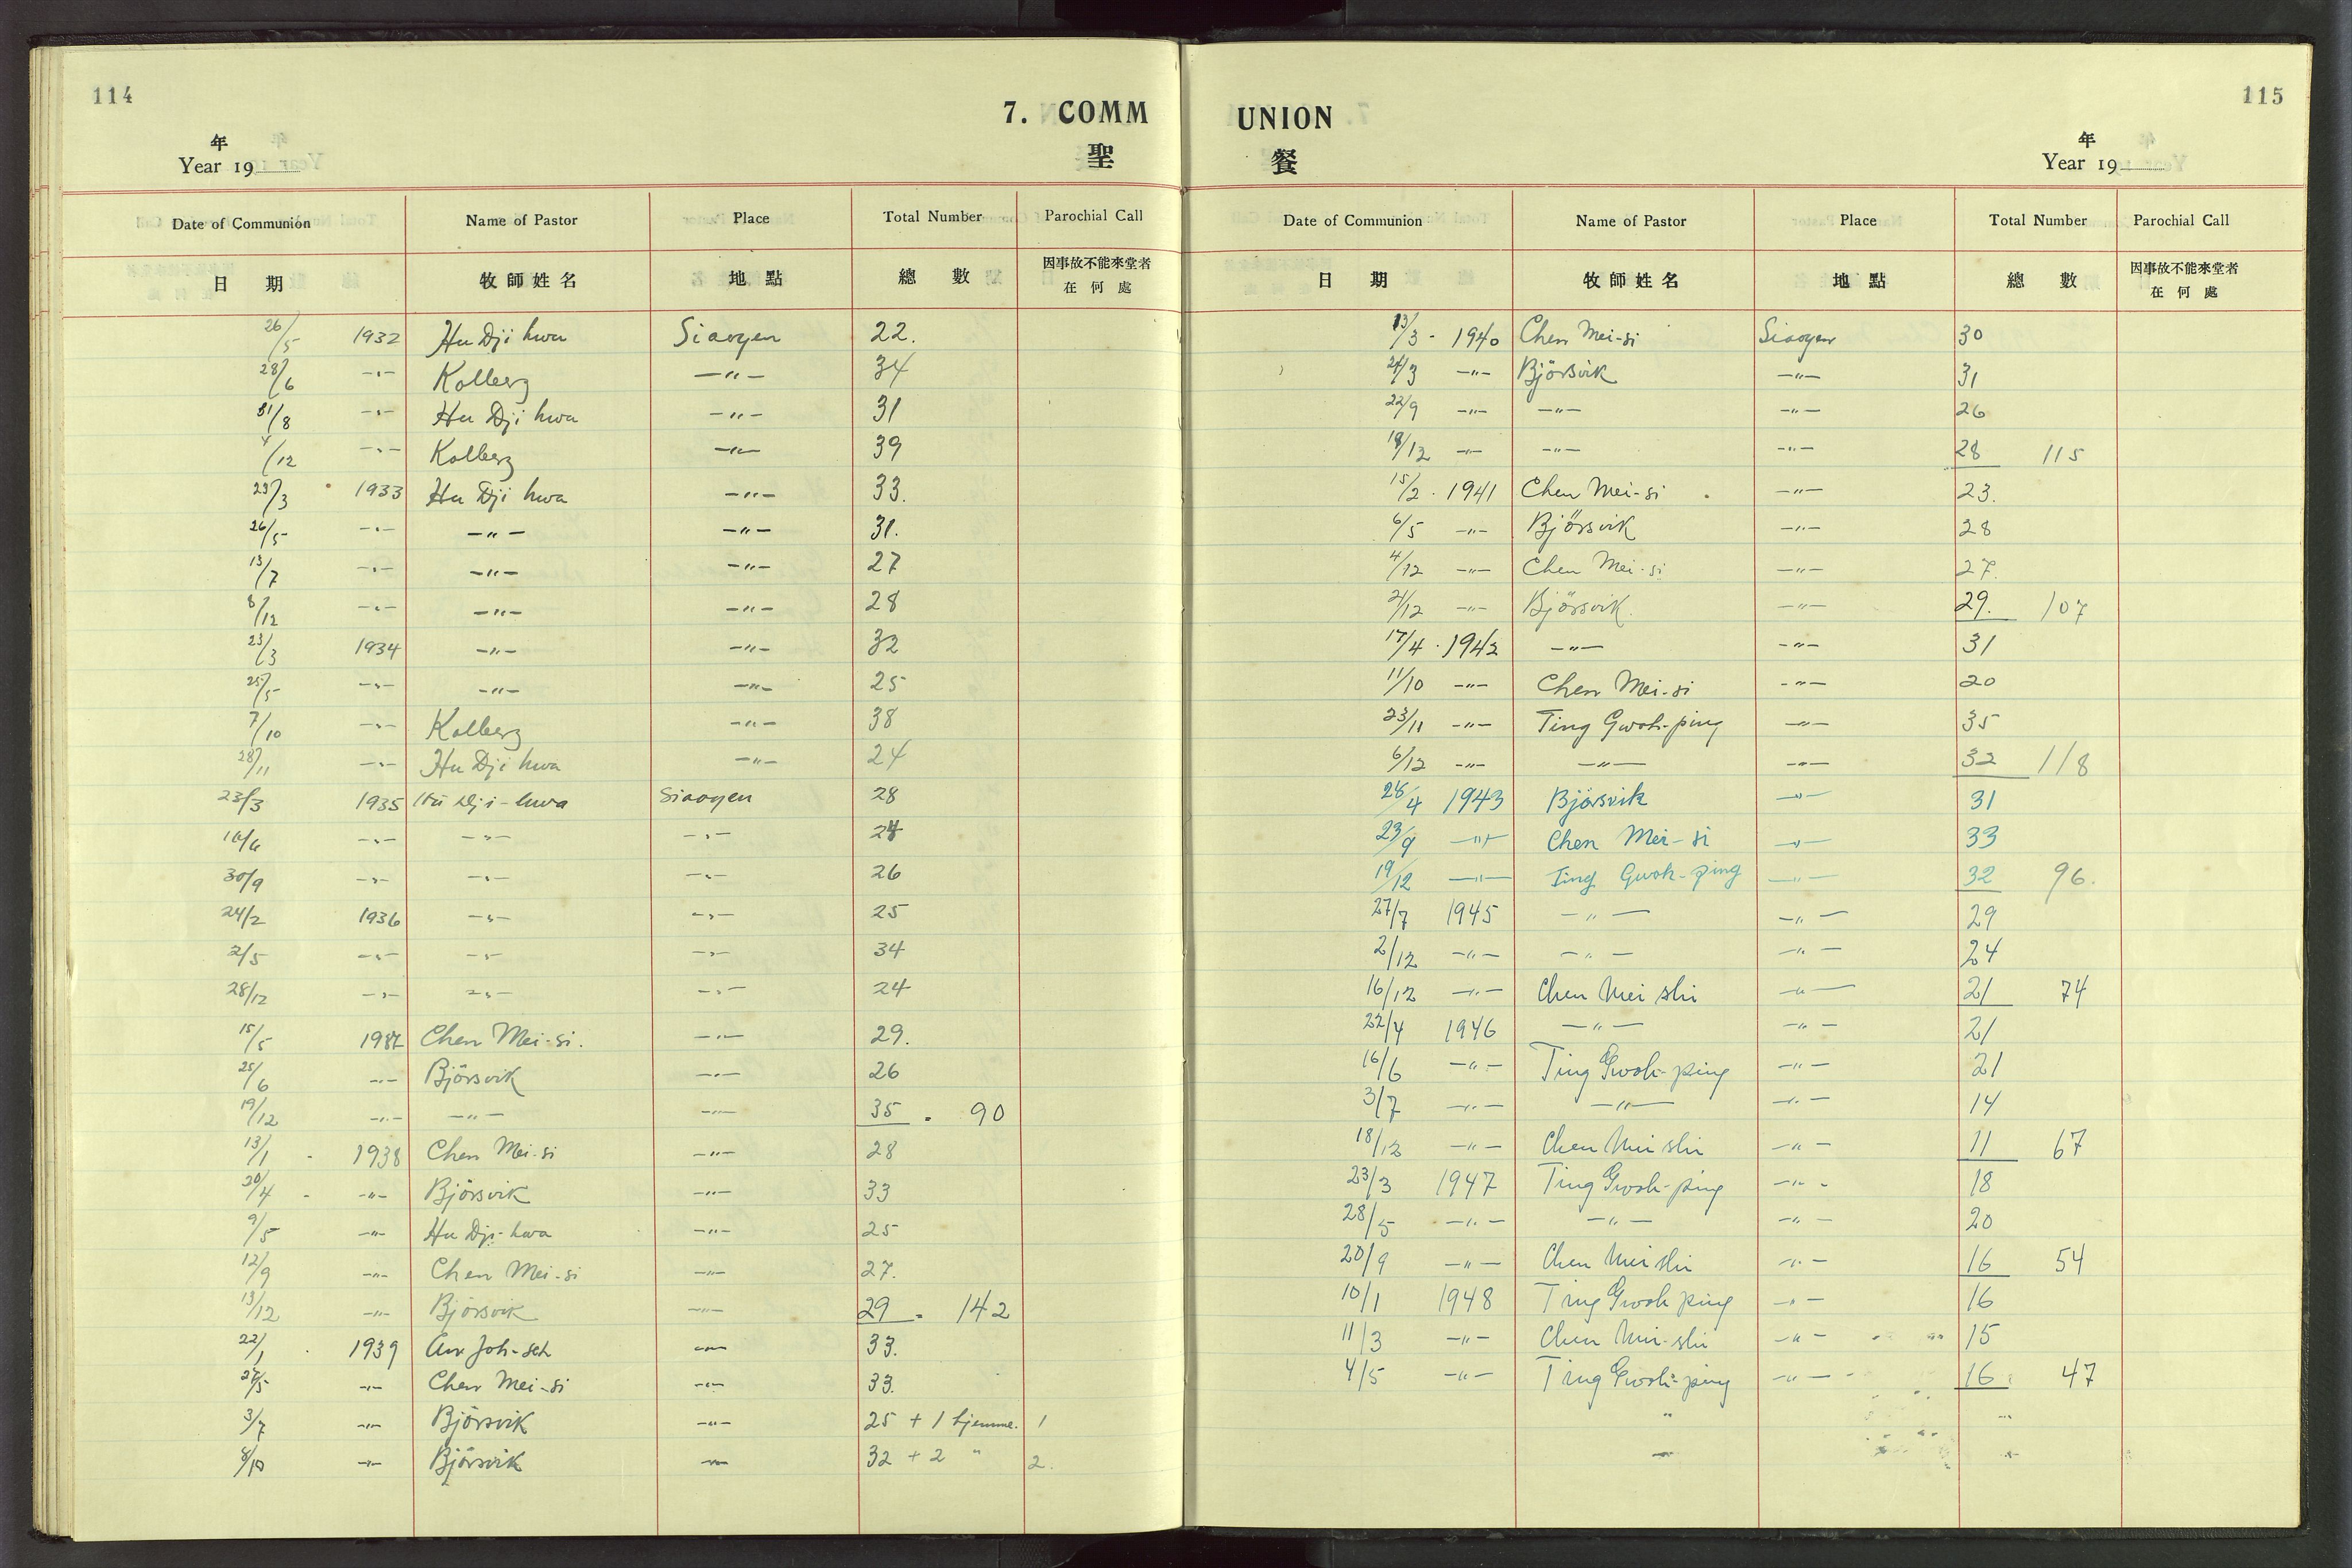 114
7. COMM
年
Year 19
聖
Date of Communion Name of Pastor Place Total Number Parochial Call
日 期 牧師姓名 地點 總 數 因事故不能來堂者
在 何 處
26/5 1932 Hu Dji hwa Siaoyen 22.
28/6 -"- Kolberg -"- 34
31/8 -"- Hu Dji hwa -"- 31
4/12 -"- Kolberg -"- 39
23/3 1933 Hu Dji hwa -"- 33.
26/5 -"- -"- -"- 31.
13/7 -"- -"- -"- 27
8/12 -"- -"- -"- 28
23/3 1934 -"- -"- 32
25/5 -"- -"- -"- 25
7/10 -"- Kolberg -"- 38
28/11 -"- Hu Dji hwa -"- 24
23/3 1935 Hu Dji-hwa Siaoyen 28
16/6 -"- -"- -"- 24
30/9 -"- -"- -"- 26
24/2 1936 -"- -"- 25
2/5 -"- -"- -"- 34
28/12 -"- -"- -"- 24
15/5 1937 Chen Mei-si. -"- 29.
25/6 -"- Björsvik -"- 26
19/12 -"- -"- -"- 35 = 90
13/1 - 1938 Chen Mei-si -"- 28
20/4 - -"- Björsvik -"- 33
9/5 -"- Hu Dji-hwa -"- 25
12/9 -"- Chen Mei-si -"- 27.
13/12 -"- Björsvik -"- 29 = 142
22/1 1939 -"- 33.
27/5 -"- Chen Mei-si -"- 33.
3/7 -"- Björsvik -"- 25 + 1 hjemme. 1
8/10 -"- Björsvik -"- 32 + 2 " 2.
115
UNION
年
Year 19
餐
Date of Communion Name of Pastor Place Total Number Parochial Call
日 期 牧師姓名 地點 總 數 因事故不能來堂者
在 何 處
13/3 - 1940 Chen Mei-si Siaoyen 30
24/3 -"- Björsvik -"- 31
22/9 -"- -"- -"- 26
18/12 -"- -"- -"- 28 115
15/2 . 1941 Chen Mei-si -"- 23.
6/5 -"- Björsvik -"- 28
4/12 -"- Chen Mei-si -"- 27.
21/12 -"- Björsvik. -"- 29. 107
17/4 . 1942 -"- -"- 31
11/10 -"- Chen Mei-si -"- 20
23/11 -"- Ting Gwoh-ping -"- 35
6/12 -"- -"- -"- 32 118
28/4 1943 Björsvik -"- 31
23/9 -"- Chen Mei-si -"- 33
19/12 -"- Ting Gwoh-ping -"- 32 96.
27/7 1945 -"- -"- 29
2/12 -"- -"- -"- 24
16/12 -"- Chen Mei shi -"- 21 74
22/4 1946 -"- -"- 21
16/6 -"- Ting Gwoh-ping -"- 21
3/7 -"- -"- -"- 14
18/12 -"- Chen Mei shi -"- 11 67
23/3 1947 Ting Gwoh-ping -"- 18
28/5 -"- -"- -"- 20
20/9 -"- Chen Mei shi -"- 16 54
10/1 1948 Ting Gwoh ping -"- 16
11/3 -"- Chen Mei-shi -"- 15
4/5 -"- Ting Gwoh-ping -"- 16 47